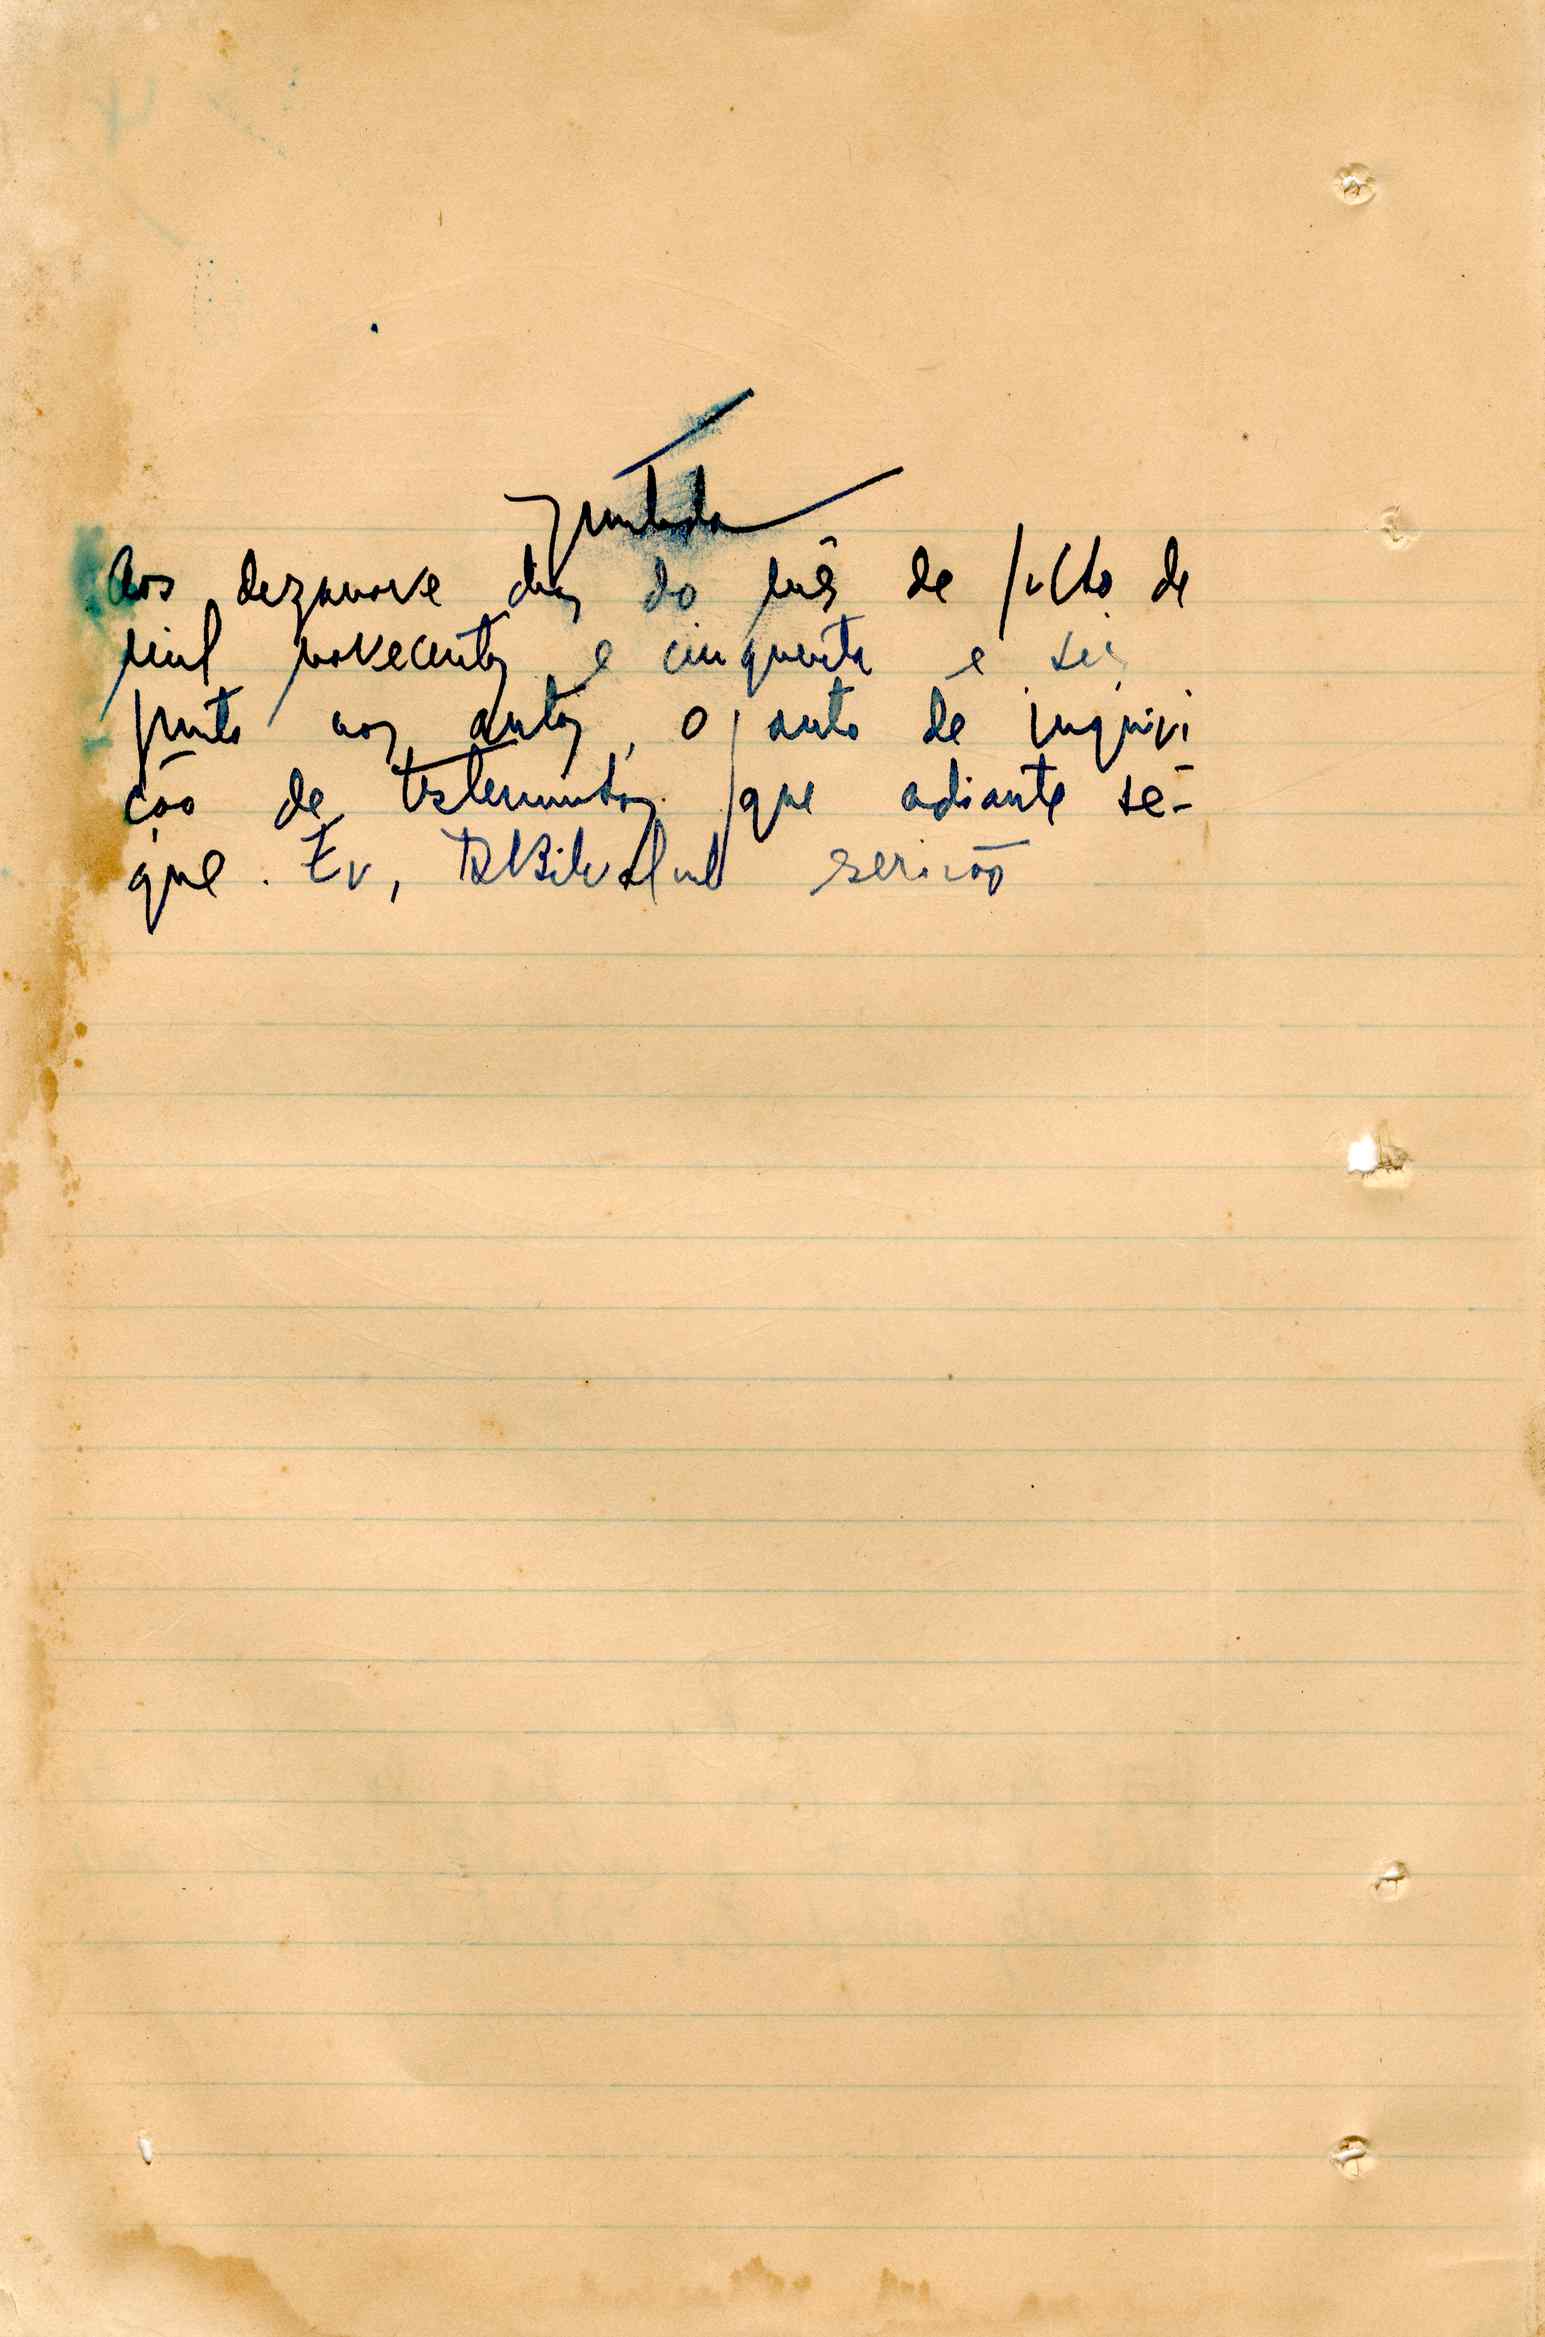 Juntada
Aos dezanove dias do mês de julho de
mil novecentos e cinquenta e seis
junto aos autos, o auto de inquiri
ção de testemunhas que adiante se-
gue. Eu, escrivão